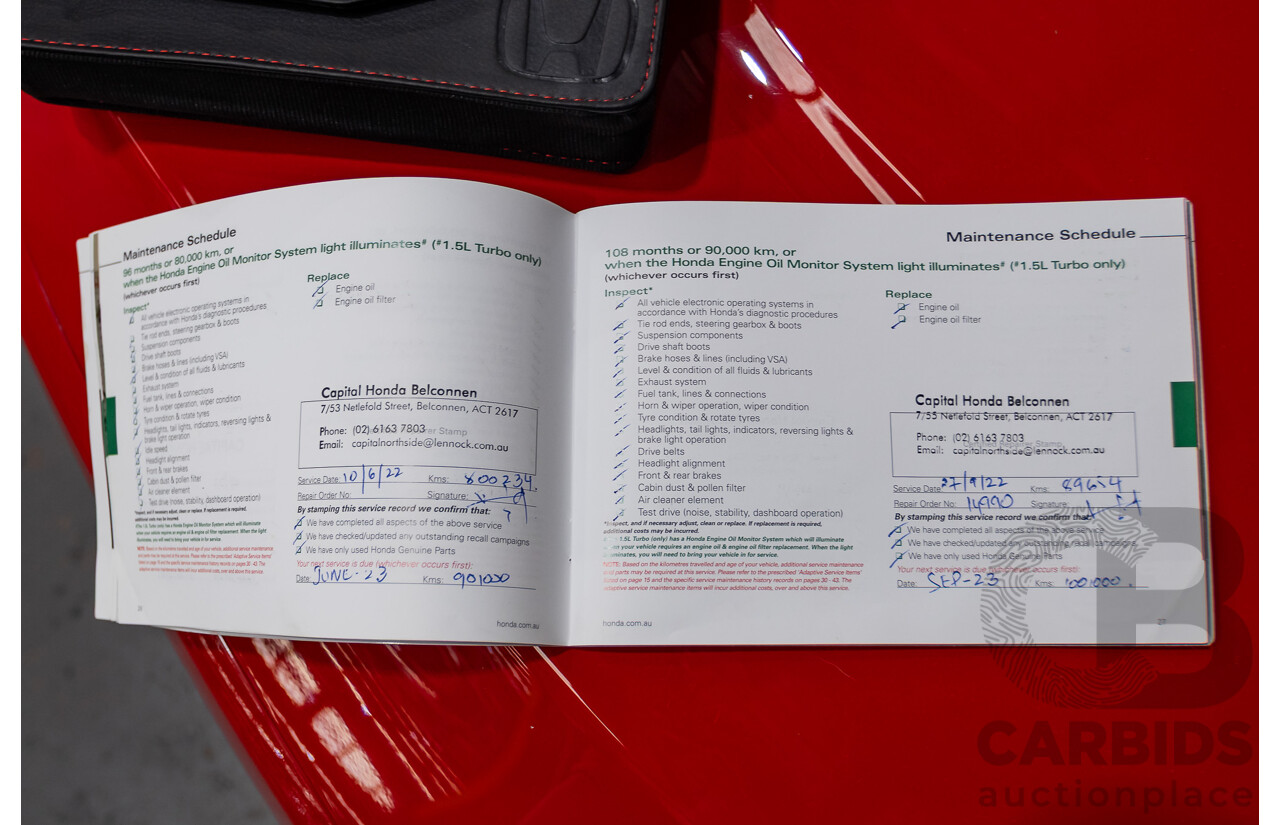 Maintenance Schedule
96 months or 80,000 km, or
when the Honda Engine Oil Monitor System light illuminates# (#1.5L Turbo only)
(whichever occurs first)
Inspect*
All vehicle electronic operating systems in
accordance with Honda's diagnostic procedures
Tie rod ends, steering gearbox & boots
Suspension components
Drive shaft boots
Brake hoses & lines (including VSA)
Level & condition of all fluids & lubricants
Exhaust system
Fuel tank, lines & connections
Horn & wiper operation, wiper condition
Tyre condition & rotate tyres
Headlights, tail lights, indicators, reversing lights &
brake light operation
Idle speed
Headlight alignment
Front & rear brakes
Cabin dust & pollen filter
Air cleaner element
Test drive (noise, stability, dashboard operation)
*Inspect, and if necessary adjust, clean or replace. If replacement is required,
additional costs may be incurred.
Replace
Engine oil
Engine oil filter
Capital Honda Belconnen
7/53 Netlefold Street, Belconnen, ACT 2617
Phone: (02) 6163 7803
Email: capitalnorthside@lennock.com.au
Service Date: 10/6/22 Kms: 800234
Repair Order No: Signature:
By stamping this service record we confirm that:
We have completed all aspects of the above service
We have checked/updated any outstanding recall campaigns
We have only used Honda Genuine Parts
Your next service is due (whichever occurs first):
Date: JUNE-23 Kms: 901000
honda.com.au
Maintenance Schedule
108 months or 90,000 km, or
when the Honda Engine Oil Monitor System light illuminates# (#1.5L Turbo only)
(whichever occurs first)
Inspect*
All vehicle electronic operating systems in
accordance with Honda's diagnostic procedures
Tie rod ends, steering gearbox & boots
Suspension components
Drive shaft boots
Brake hoses & lines (including VSA)
Level & condition of all fluids & lubricants
Exhaust system
Fuel tank, lines & connections
Horn & wiper operation, wiper condition
Tyre condition & rotate tyres
Headlights, tail lights, indicators, reversing lights &
brake light operation
Drive belts
Headlight alignment
Front & rear brakes
Cabin dust & pollen filter
Air cleaner element
Test drive (noise, stability, dashboard operation)
*Inspect, and if necessary adjust, clean or replace. If replacement is required,
additional costs may be incurred.
1.5L Turbo (only) has a Honda Engine Oil Monitor System which will illuminate
when your vehicle requires an engine oil & engine oil filter replacement. When the light
illuminates, you will need to bring your vehicle in for service.
NOTE: Based on the kilometres travelled and age of your vehicle, additional service maintenance
and parts may be required at this service. Please refer to the prescribed 'Adaptive Service Items'
listed on page 15 and the specific service maintenance history records on pages 30 - 43. The
adaptive service maintenance items will incur additional costs, over and above this service.
Replace
Engine oil
Engine oil filter
Capital Honda Belconnen
7/53 Netlefold Street, Belconnen, ACT 2617
Phone: (02) 6163 7803
Email: capitalnorthside@lennock.com.au
Service Date: 27/9/22 Kms: 89654
Repair Order No: 14990 Signature:
By stamping this service record we confirm that:
We have completed all aspects of the above service
We have checked/updated any outstanding recall campaigns
We have only used Honda Genuine Parts
Your next service is due (whichever occurs first):
Date: SEP-23 Kms: 100,000.
honda.com.au
CARBIDS
auctionplace